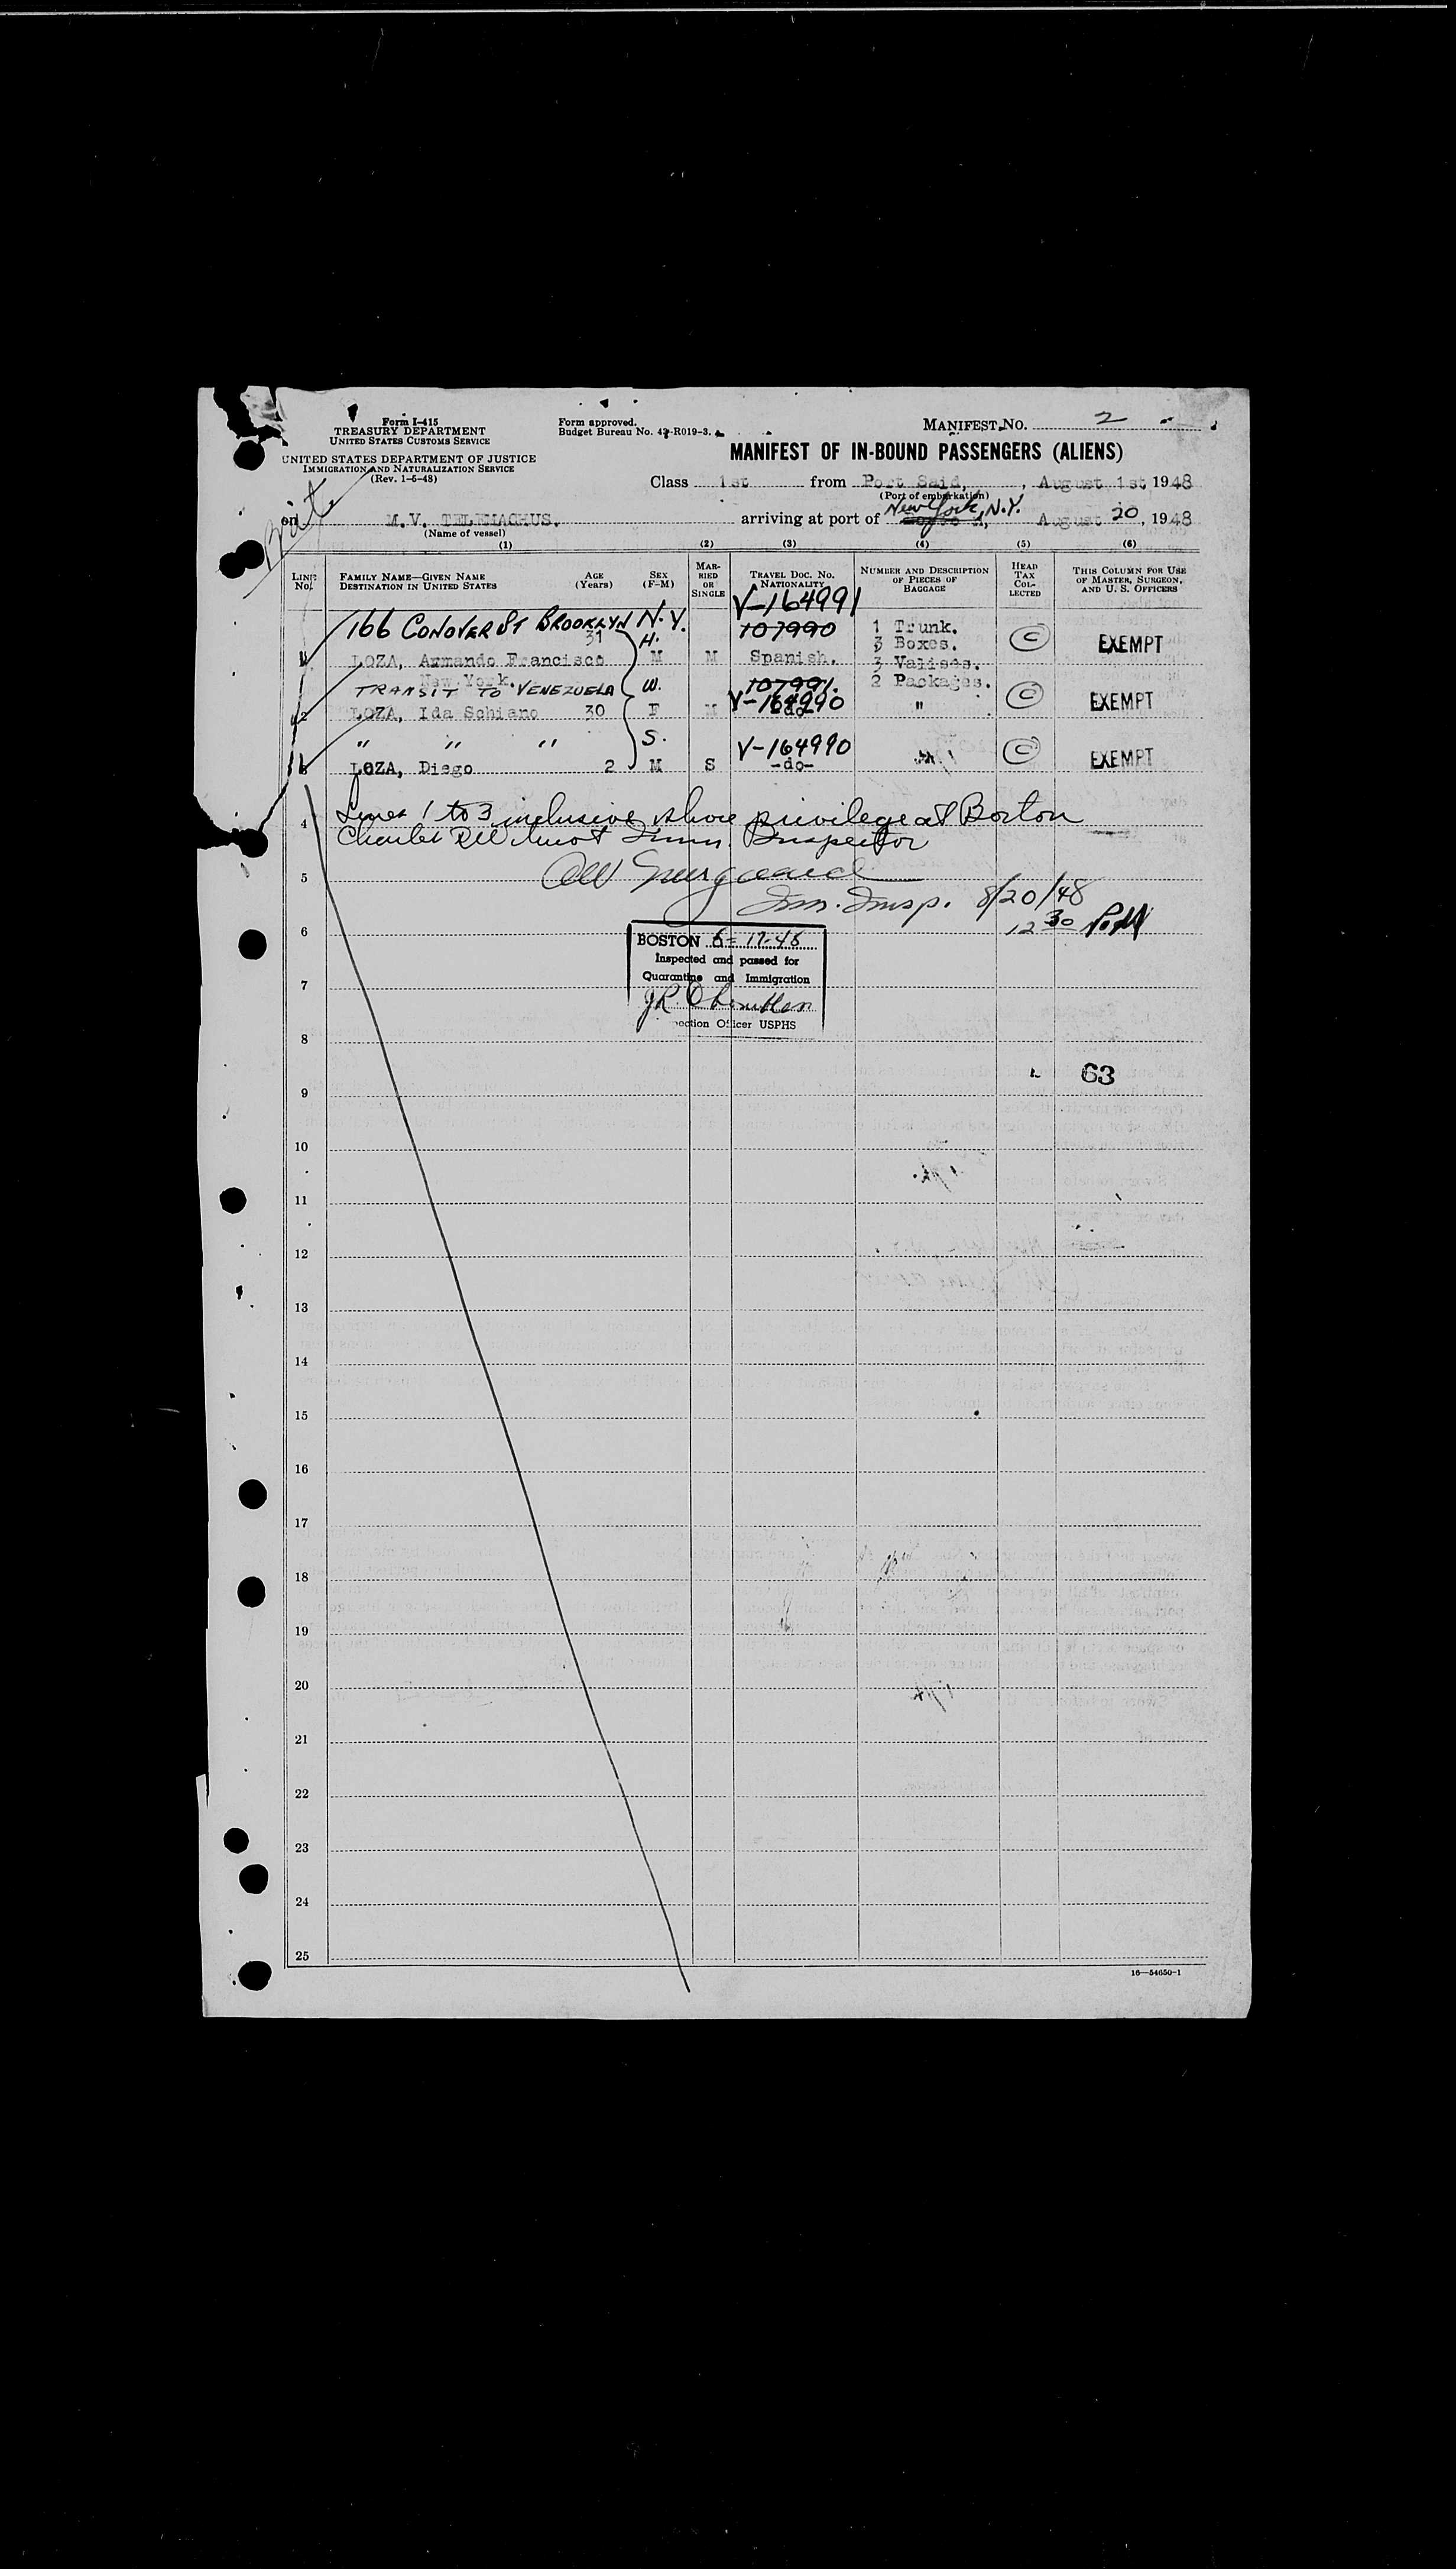 Form I-415
TREASURY DEPARTMENT
UNITED STATES CUSTOMS SERVICE
UNITED STATES DEPARTMENT OF JUSTICE
IMMIGRATION AND NATURALIZATION SERVICE
(Rev. 1-6-48)
Form approved.
Budget Bureau No. 43-R019-3.
MANIFEST NO. 2
MANIFEST OF IN-BOUND PASSENGERS (ALIENS)
Class 1st from Port Said, , August 1st 1948
(Port of embarkation)
Brit
on M.V. TELEMACHUS. arriving at port of New York, N.Y. August 20, 1948
(Name of vessel)
(1) (2) (3) (4) (5) (6)
LINE No. FAMILY NAME—GIVEN NAME DESTINATION IN UNITED STATES AGE (Years) SEX (F-M) MARRIED OR SINGLE TRAVEL DOC. NO. NATIONALITY NUMBER AND DESCRIPTION OF PIECES OF BAGGAGE HEAD TAX COLLECTED THIS COLUMN FOR USE OF MASTER, SURGEON, AND U. S. OFFICERS
V-164991
166 CONOVER ST BROOKLYN N.Y. 107990 1 Trunk.
31 H. 3 Boxes. C EXEMPT
1 LOZA, Armando Francisco M M Spanish. 3 Valises.
New York. 107991. 2 Packages.
TRANSIT TO VENEZUELA W. V-164990 C EXEMPT
2 LOZA, Ida Schiano 30 F M -do- "
" " " S. V-164990 C EXEMPT
3 LOZA, Diego 2 M S -do-
Lines 1 to 3 inclusive shore privilege at Boston
4
Immn. Inspector
5
Imm. Insp. 8/20/48
12 30 P.M
6
BOSTON 8-17-48
Inspected and passed for
Quarantine and Immigration
7
J.R.
ection Officer USPHS
8
63
9
10
11
12
13
14
15
16
17
18
19
20
21
22
23
24
25
16—54650-1